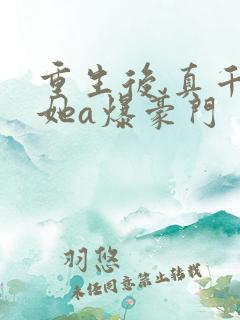 重生後,真千
她a爆豪門
羽悠
未經同意禁止轉載